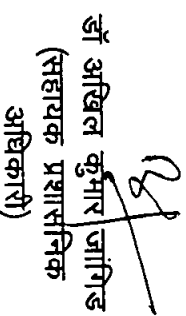 डॉ अखिल कुमार जांगिड
(सहायक प्रशासनिक
अधिकारी)